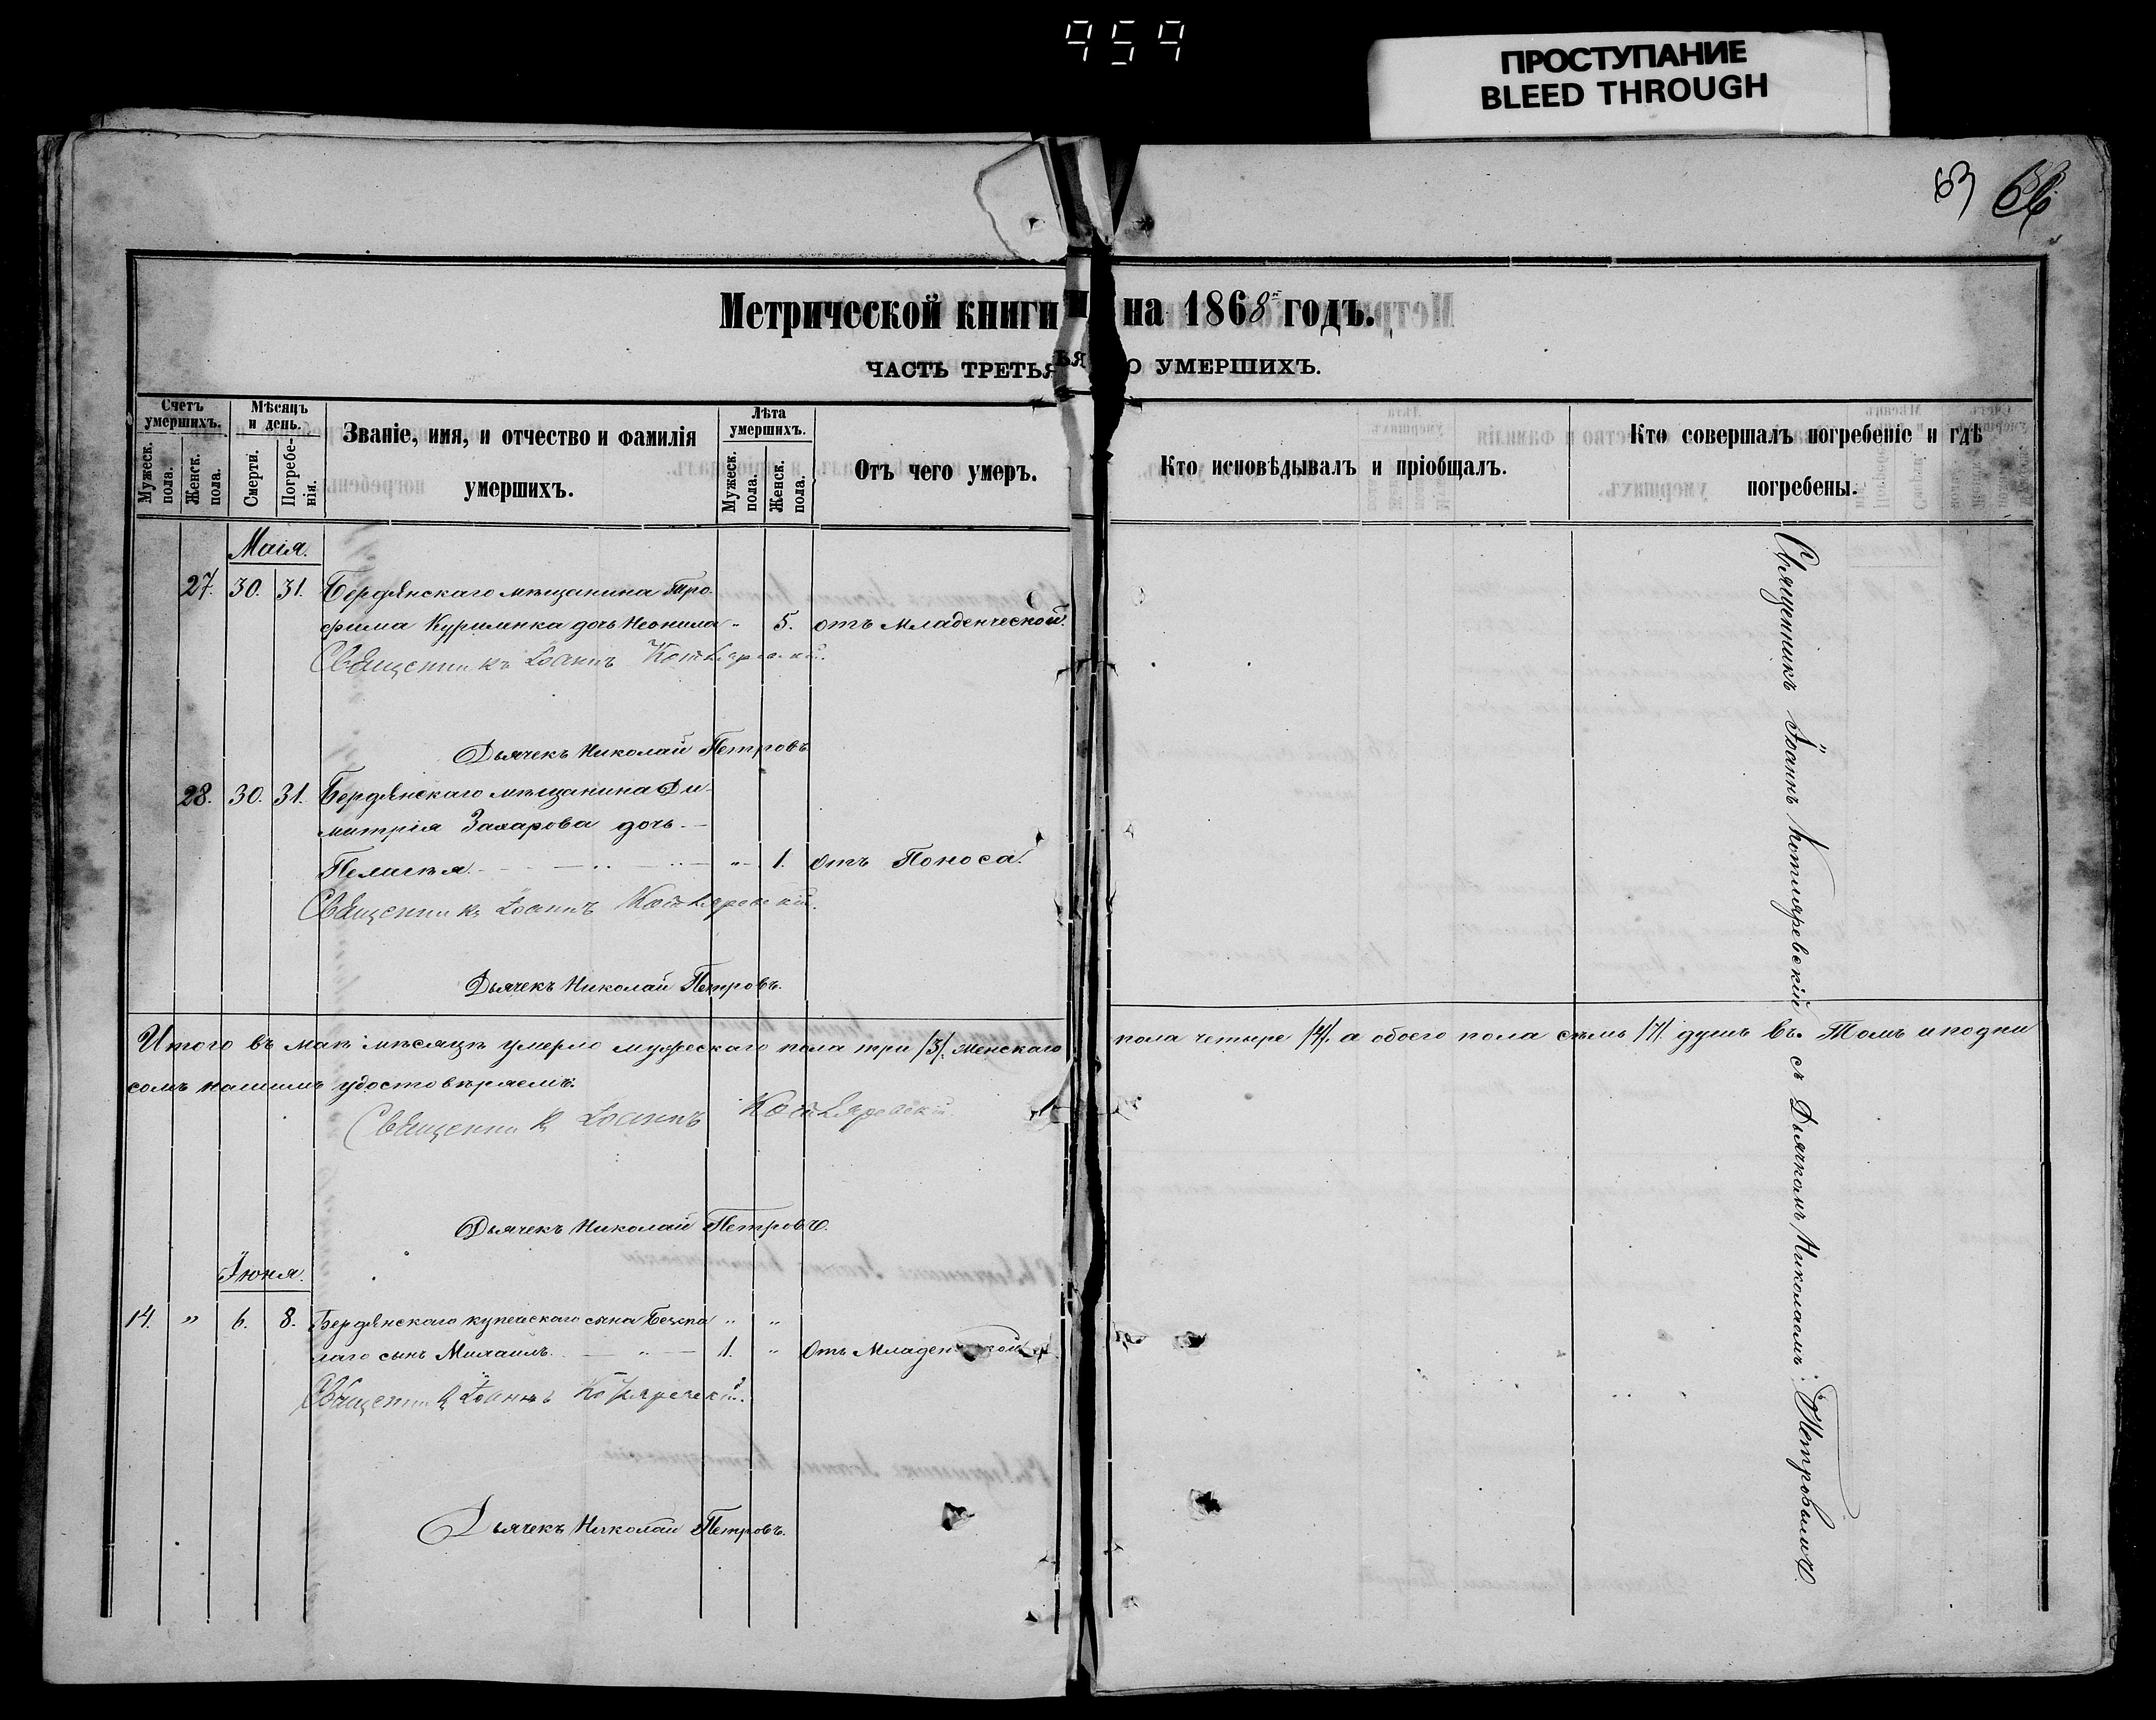 959
ПРОСТУПАНИЕ
BLEED THROUGH
63 66
Метрической книги на 1868 годъ.
ЧАСТЬ ТРЕТЬЯ О УМЕРШИХЪ.
Счетъ умершихъ.
Мужеск. пола.
Женск. пола.
Мѣсяцъ и день.
Смерти.
Погребенія.
Званіе, имя, и отчество и фамилія
умершихъ.
Лѣта умершихъ.
Мужеск. пола.
Женск. пола.
Отъ чего умеръ.
Кто исповѣдывалъ и пріобщалъ.
Кто совершалъ погребеніе и гдѣ
погребены.
Маія.
27. 30. 31. Бердянскаго мѣщанина Тро
фима Куриленка дочь Неонила " 5. отъ Младенческой.
Священникъ Іоаннъ Котляревскій.
Дьячекъ Николай Петровъ
28. 30. 31. Бердянскаго мѣщанина Ди
митрія Захарова дочь
Пелагія " 1. отъ Поноса.
Священникъ Іоаннъ Котляревскій.
Дьячекъ Николай Петровъ.
Итого въ маѣ мѣсяцѣ умерло мужескаго пола три /3/. женскаго пола четыре /4/. а обоего пола семь /7/. душъ въ Томъ и подпи
сомъ нашимъ удостовѣряемъ.
Священникъ Іоаннъ Котляревскій.
Дьячекъ Николай Петровъ.
Іюня.
14. " 6. 8. Бердянскаго купеческаго сына " "
лаго сынъ Михаилъ. " 1. " Отъ Младенческой
Священникъ Іоаннъ Котляревскій.
Дьячекъ Николай Петровъ.
Священникъ Іоаннъ Котляревскій съ Дьячкомъ Николаемъ Петровымъ.